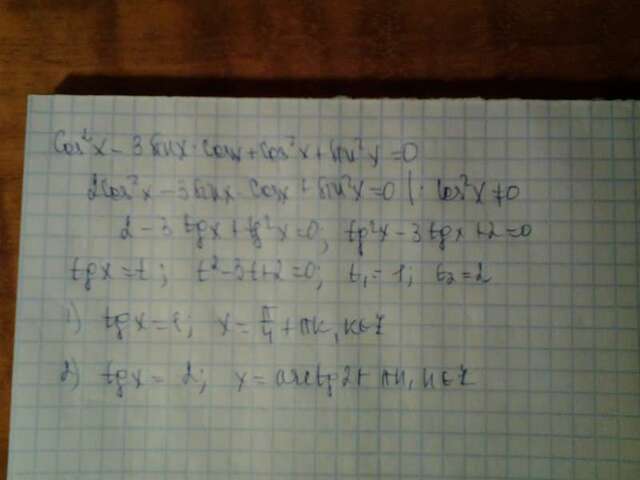 cos²x - 3 sinx · cosx + cos²x + sin²x = 0
2cos²x - 3 sinx · cosx + sin²x = 0 | : cos²x ≠ 0
2 - 3 tgx + tg²x = 0; tg²x - 3 tgx + 2 = 0
tgx = t; t² - 3t + 2 = 0; t₁ = 1; t₂ = 2
1) tgx = 1; x = π/4 + πk, k∈Z
2) tgx = 2; x = arctg 2 + πn, n∈Z